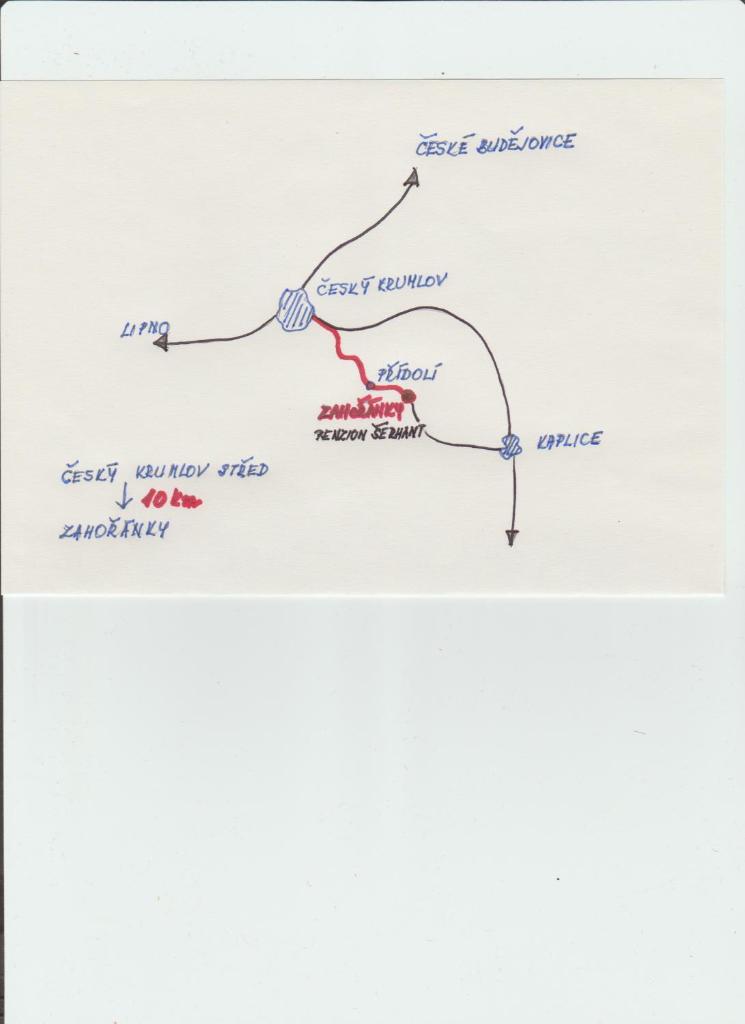 ČESKÉ BUDĚJOVICE
ČESKÝ KRUMLOV
LIPNO
PŘÍDOLÍ
ZAHOŘÁNKY
PENZION ŠERHANT
KAPLICE
ČESKÝ KRUMLOV STŘED
↓ 10 km
ZAHOŘÁNKY